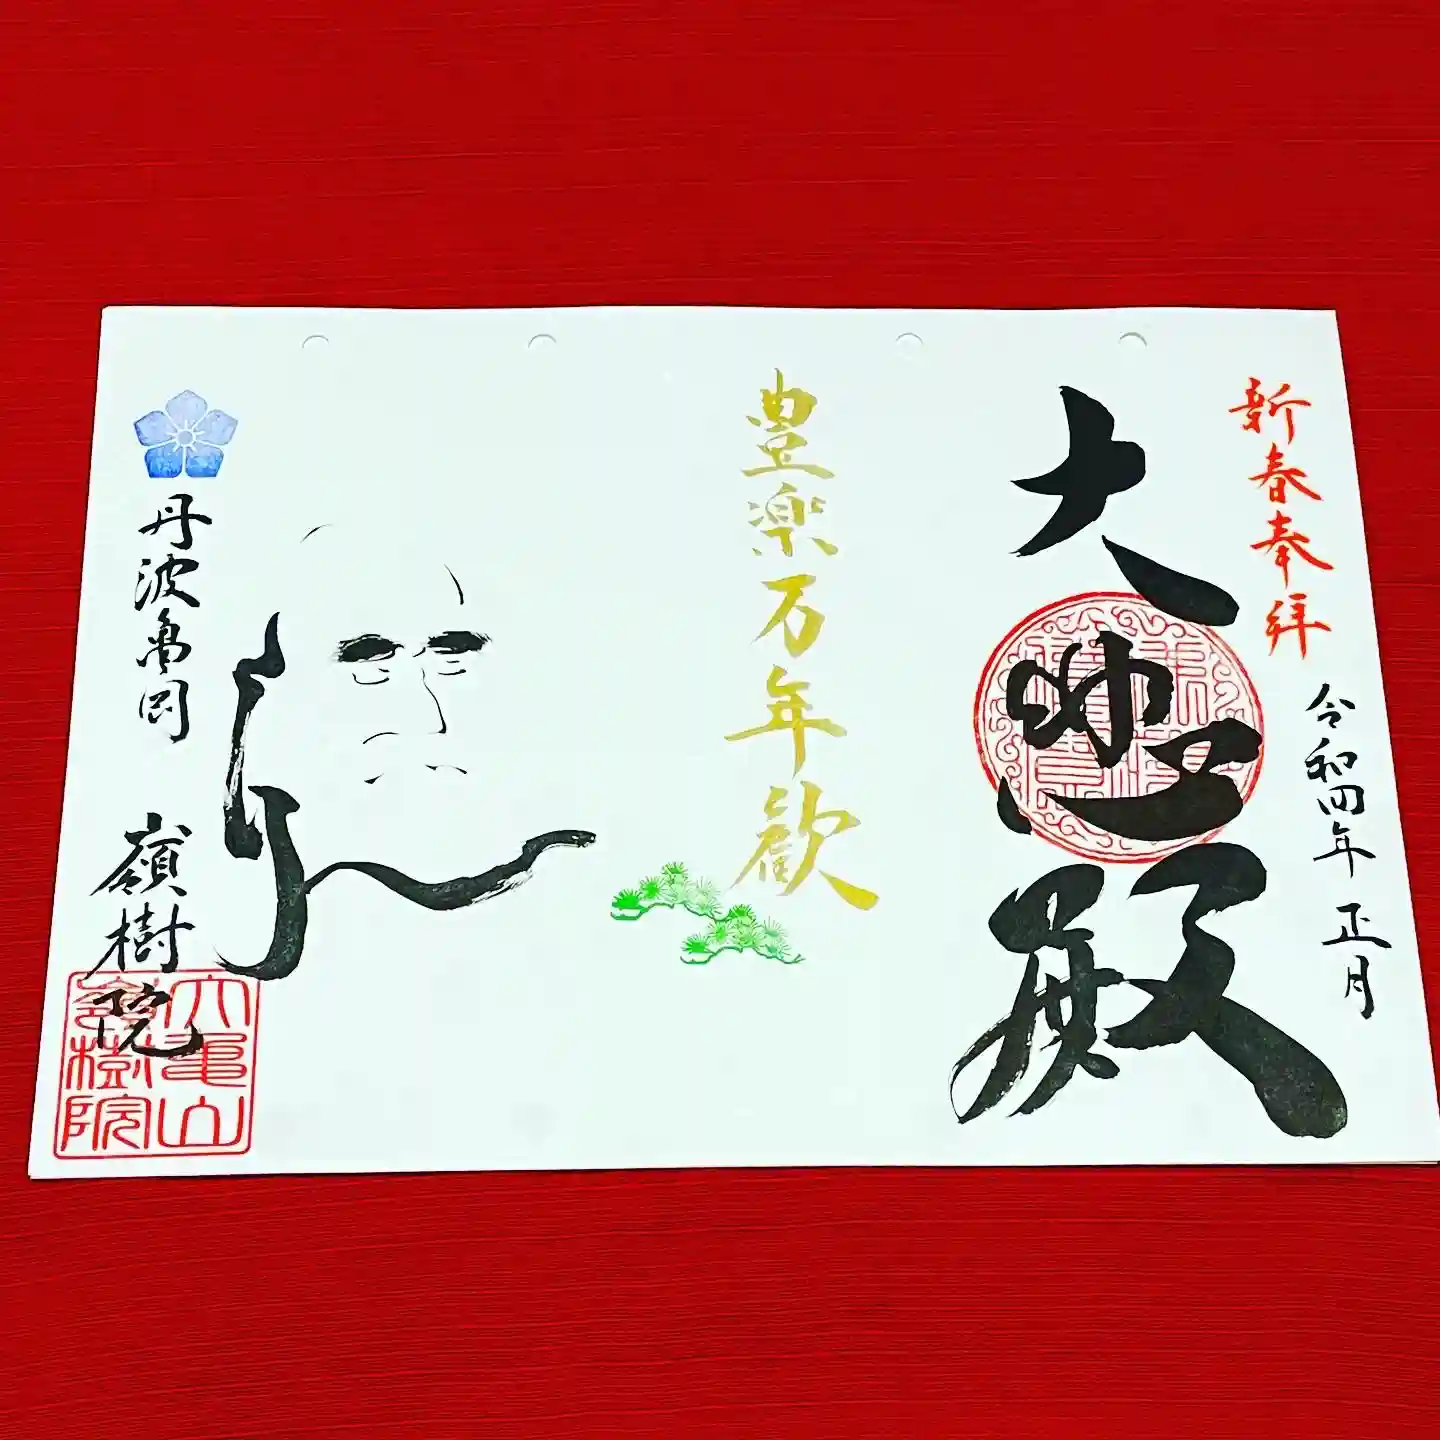 新春奉拝
令和四年 正月
大悲殿
豊楽万年歓
丹波亀岡 嶺樹院
六亀山
嶺樹院